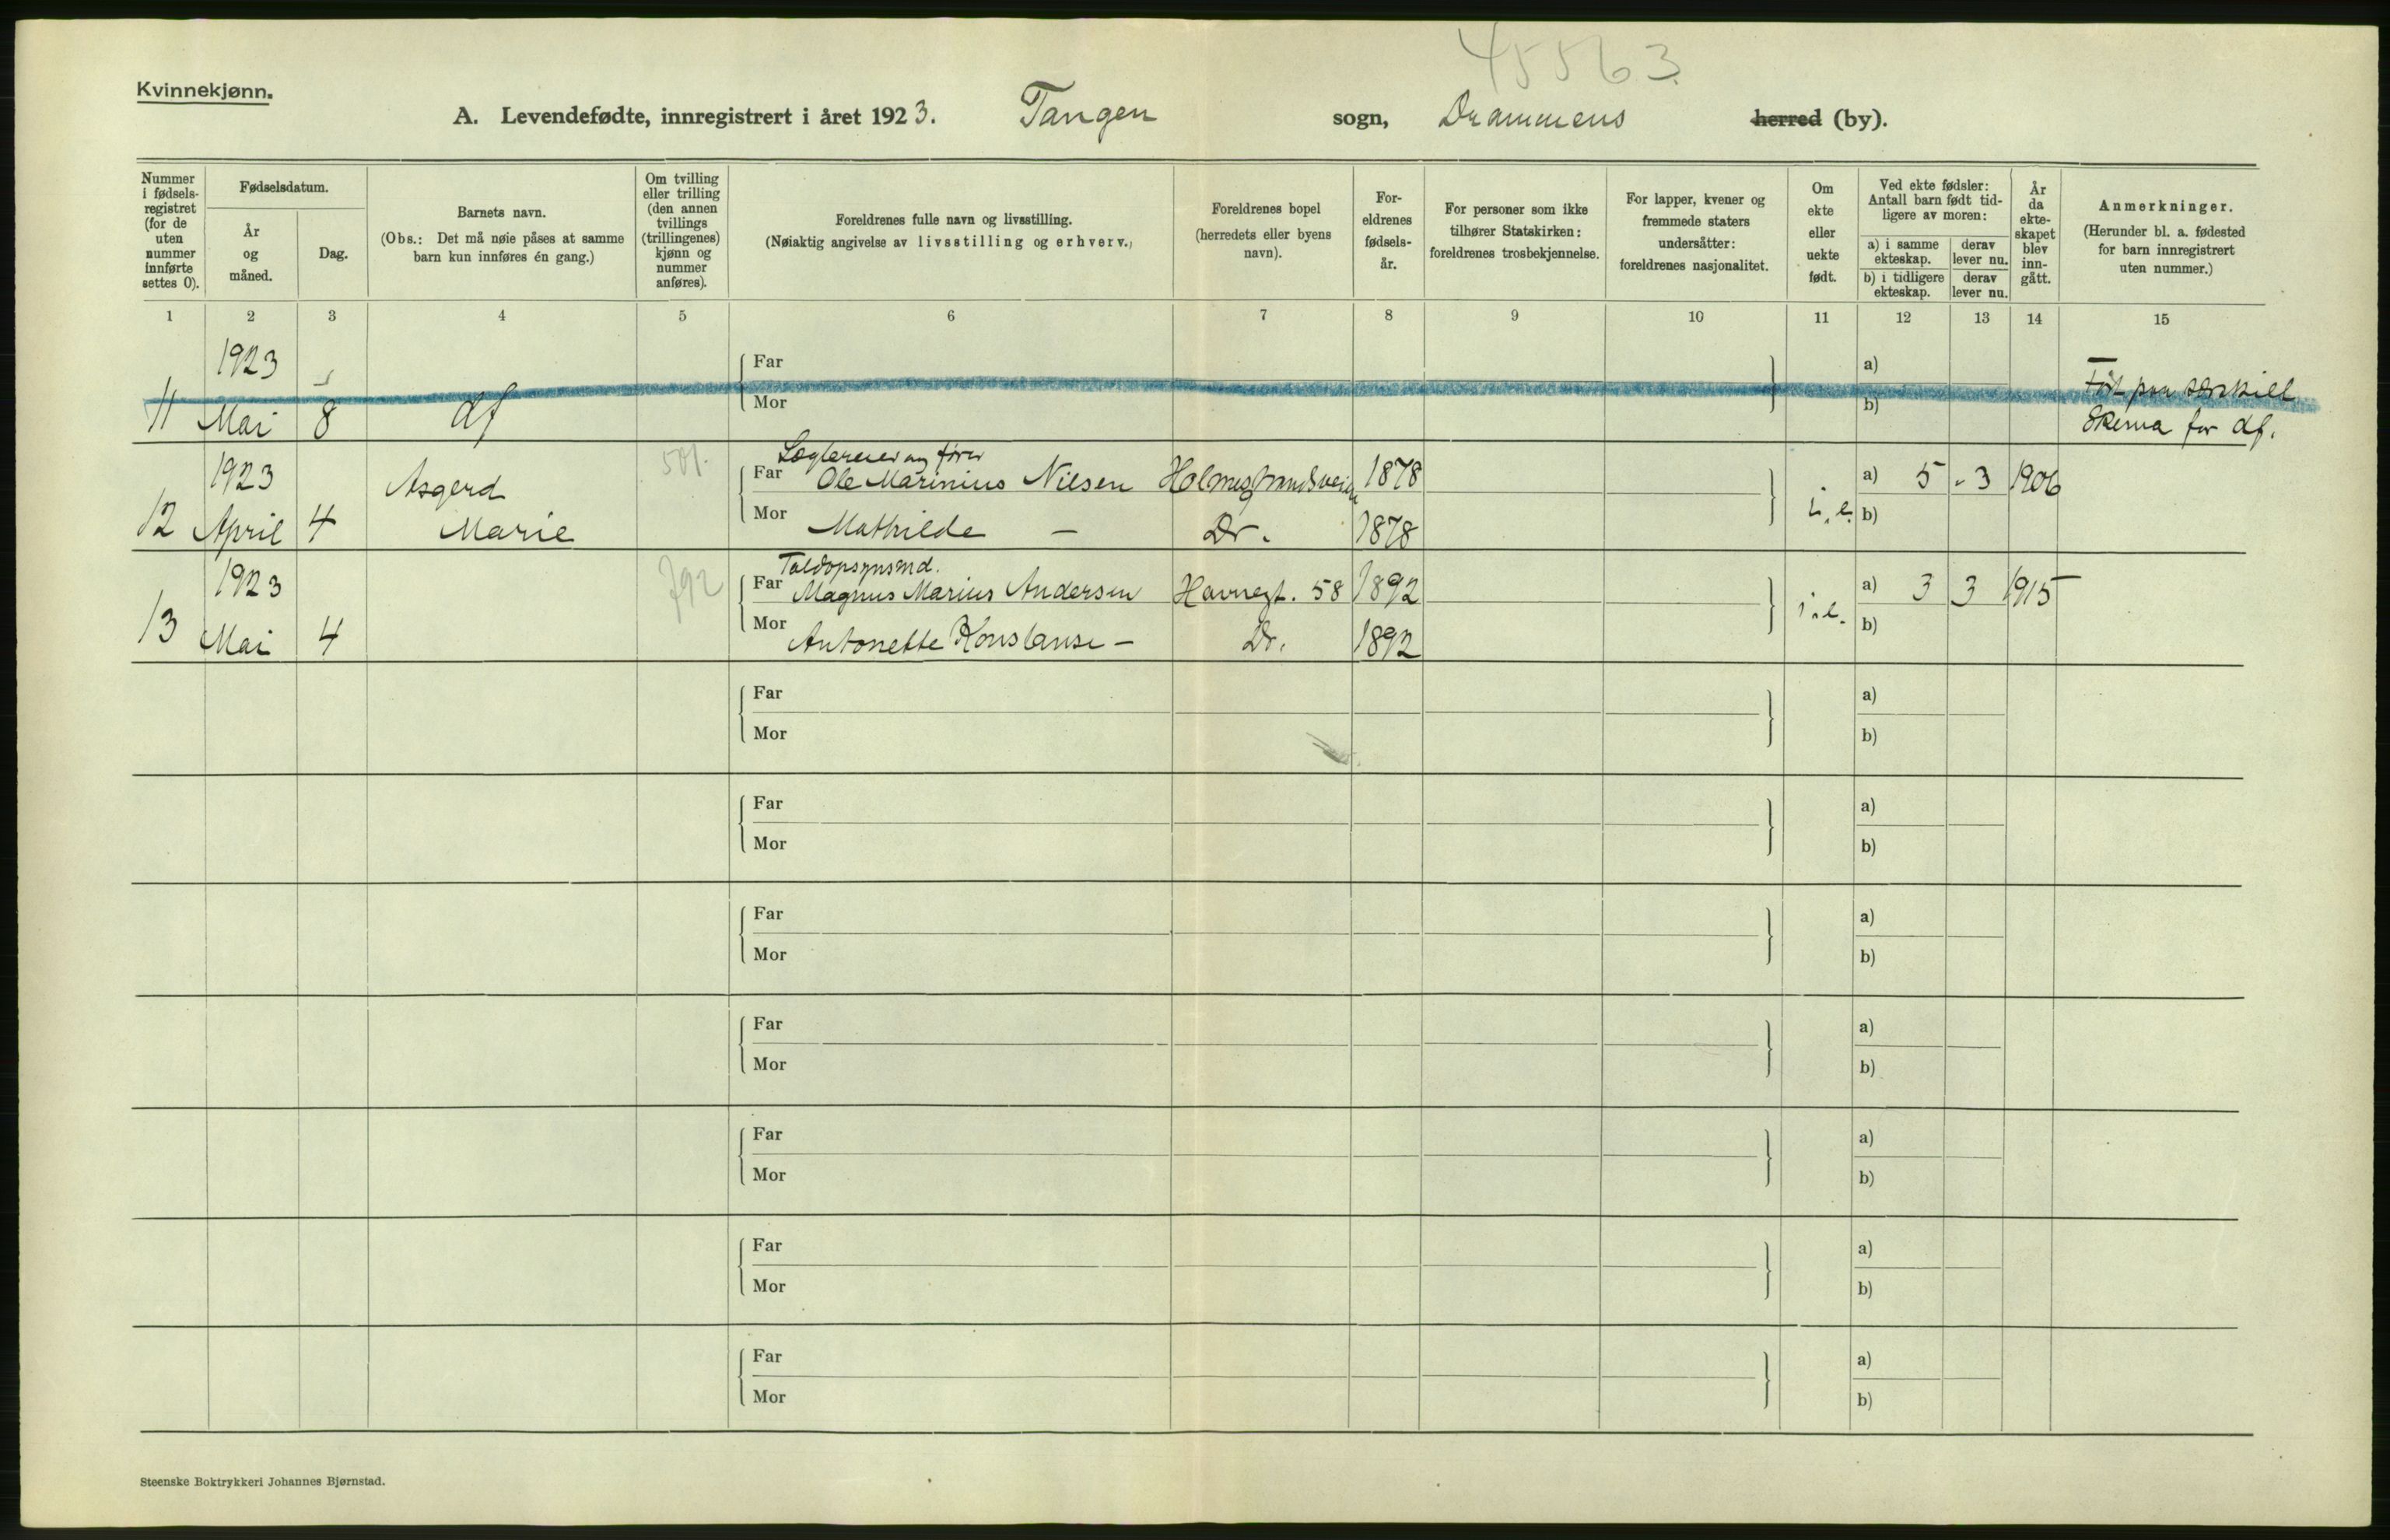 45563.
Kvinnekjønn.
A. Levendefødte, innregistrert i året 1923. Tangen sogn, Drammens herred (by).
Nummer i fødsels-registret (for de uten nummer innførte settes 0).
Fødselsdatum.
År og måned.
Dag.
Barnets navn.
(Obs.: Det må nøie påses at samme barn kun innføres én gang.)
Om tvilling eller trilling (den annen tvillings (trillingenes) kjønn og nummer anføres).
Foreldrenes fulle navn og livsstilling.
(Nøiaktig angivelse av livsstilling og erhverv.)
Foreldrenes bopel (herredets eller byens navn).
For-eldrenes fødsels-år.
For personer som ikke tilhører Statskirken: foreldrenes trosbekjennelse.
For lapper, kvener og fremmede staters undersåtter: foreldrenes nasjonalitet.
Om ekte eller uekte født.
Ved ekte fødsler: Antall barn født tid-ligere av moren:
a) i samme ekteskap.
derav lever nu.
b) i tidligere ekteskap.
derav lever nu.
År da ekte-skapet blev inn-gått.
Anmerkninger.
(Herunder bl. a. fødested for barn innregistrert uten nummer.)
1 2 3 4 5 6 7 8 9 10 11 12 13 14 15
1923 Far a)
11 Mai 8 df Mor b) Ført paa særskilt
Skema for df.
1923 Asgerd 501. Far Ole Marinius Nilsen 1878 a) 5 - 3 1906
12 April 4 Marie Mor Mathilde — Dr. 1878 i.e. b)
Toldopsynsmd.
1923 792 Far Magnus Marius Andersen Havnegt. 58 1892 a) 3 3 1915
13 Mai 4 Mor Antonette Konstanse — Dr. 1892 i.e. b)
Far a)
Mor b)
Far a)
Mor b)
Far a)
Mor b)
Far a)
Mor b)
Far a)
Mor b)
Far a)
Mor b)
Far a)
Mor b)
Steenske Boktrykkeri Johannes Bjørnstad.